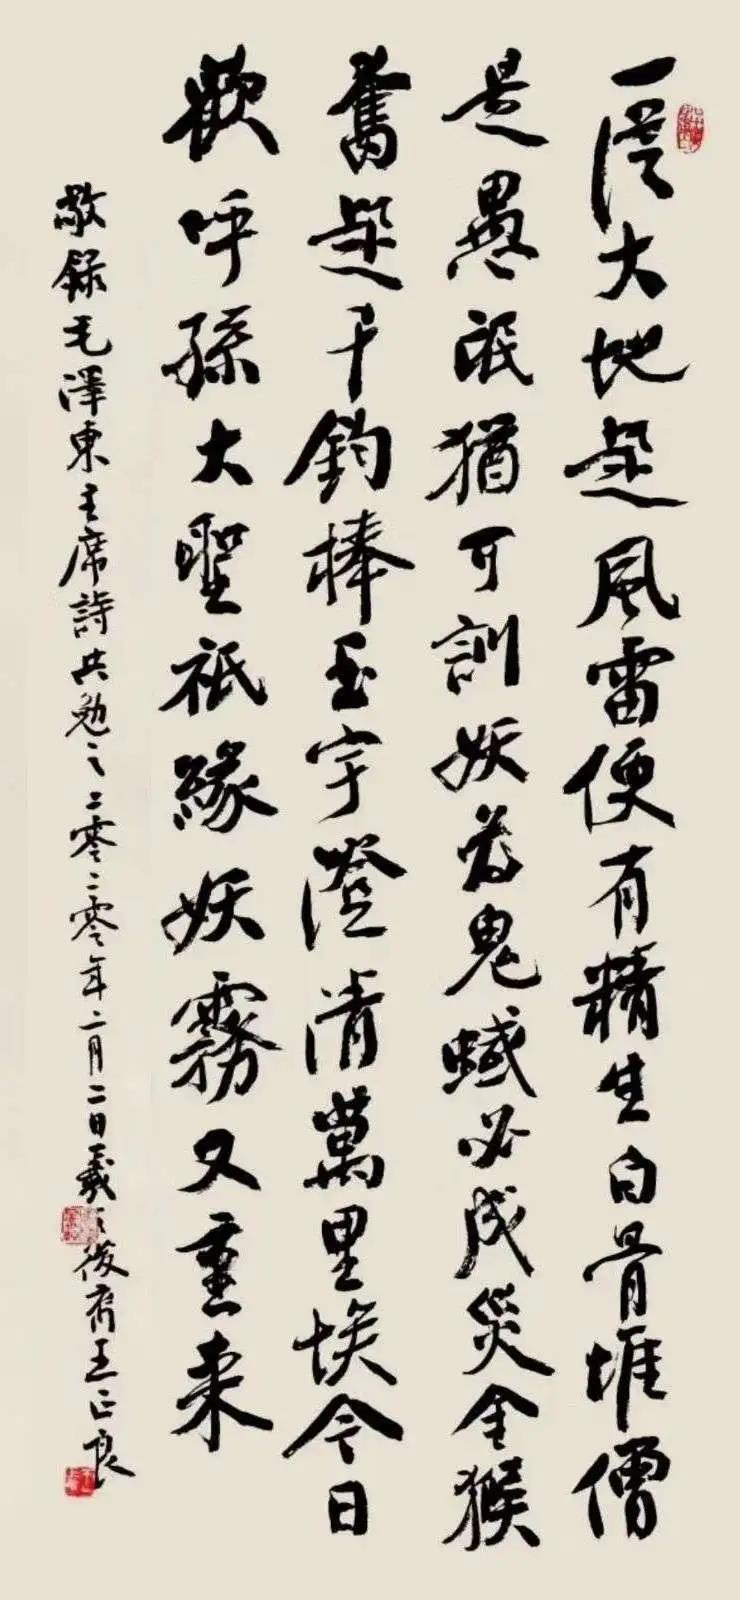 一從大地起風雷便有精生白骨堆僧
是愚氓猶可訓妖為鬼蜮必成災金猴
奮起千鈞棒玉宇澄清萬里埃今日
歡呼孫大聖祇緣妖霧又重來
敬錄毛澤東主席詩共勉之二零二零年二月二日羲之後裔王正良